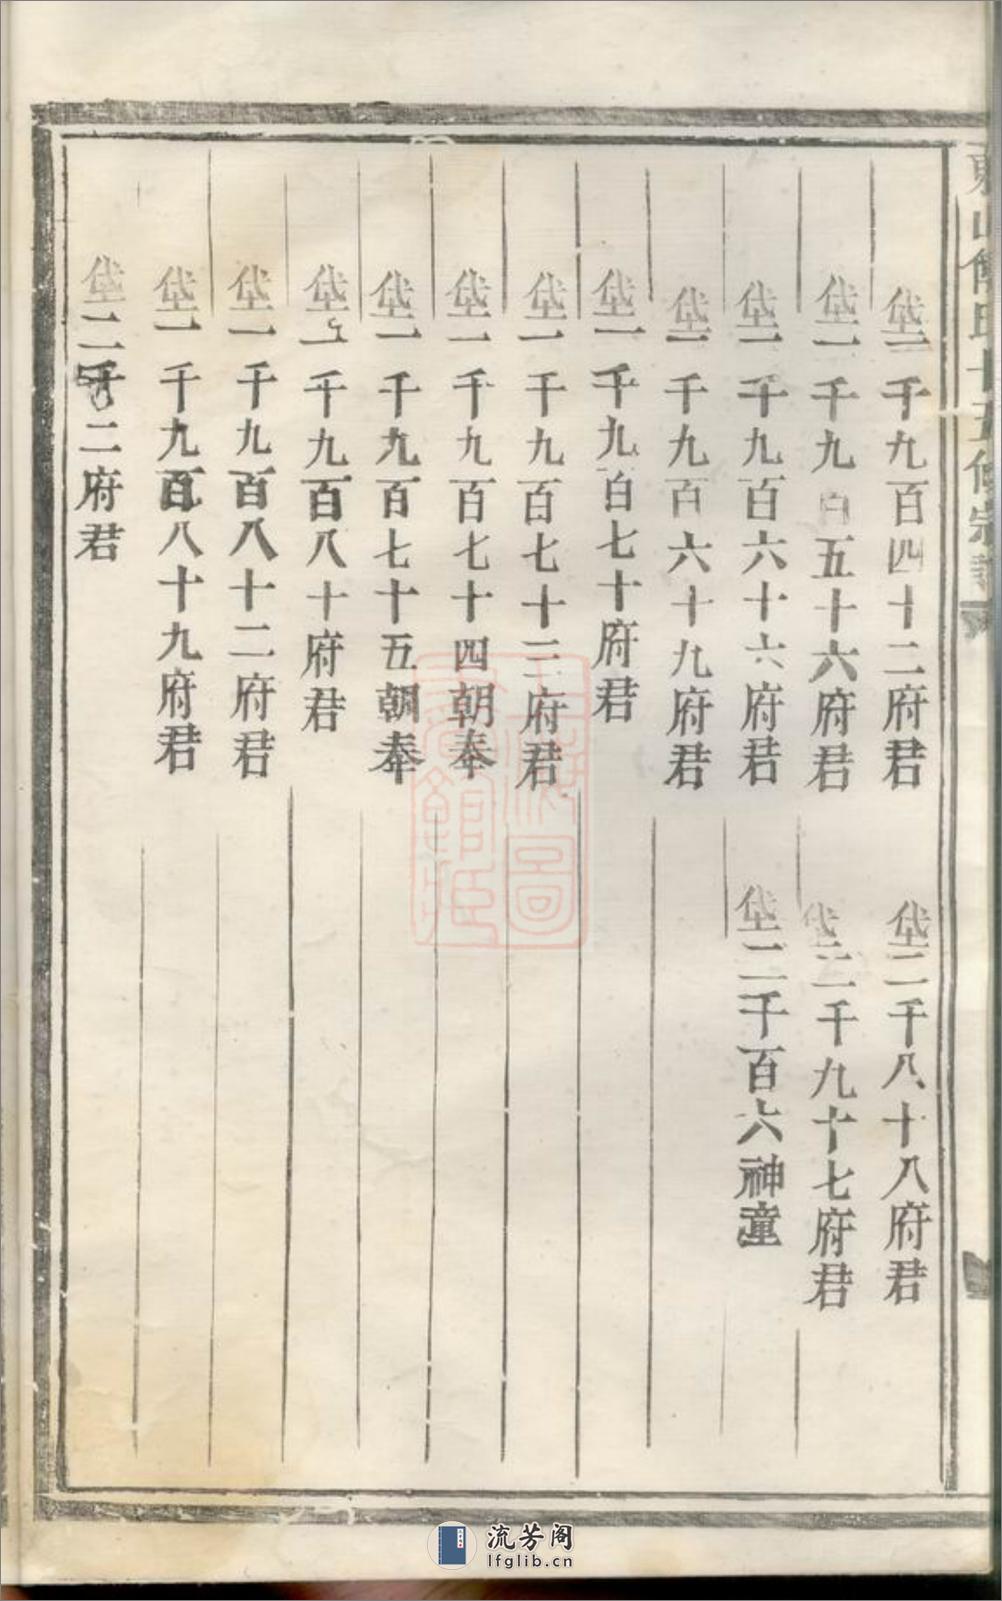 東山傅氏十五修宗譜
垡一千九百四十二府君
垡二千八十八府君
垡一千九百五十六府君
垡二千九十七府君
垡一千九百六十六府君
垡二千百六神童
垡一千九百六十九府君
垡一千九百七十府君
垡一千九百七十三府君
垡一千九百七十四朝奉
垡一千九百七十五朝奉
垡一千九百八十府君
垡一千九百八十二府君
垡一千九百八十九府君
垡二千二府君
流芳阁
lfglib.cn